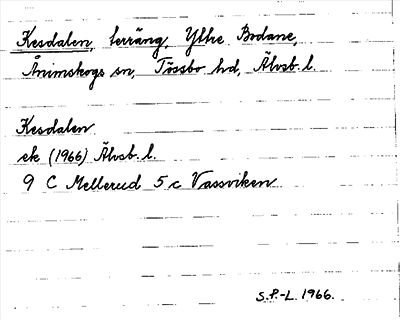 Kesdalen, terräng, Yttre Bodane,
Ånimskogs sn, Tössbo hd, Älvsb. l.
Kesdalen
ek (1966) Älvsb. l.
9 C Mellerud 5 c Vassviken
S.P.-L. 1966.